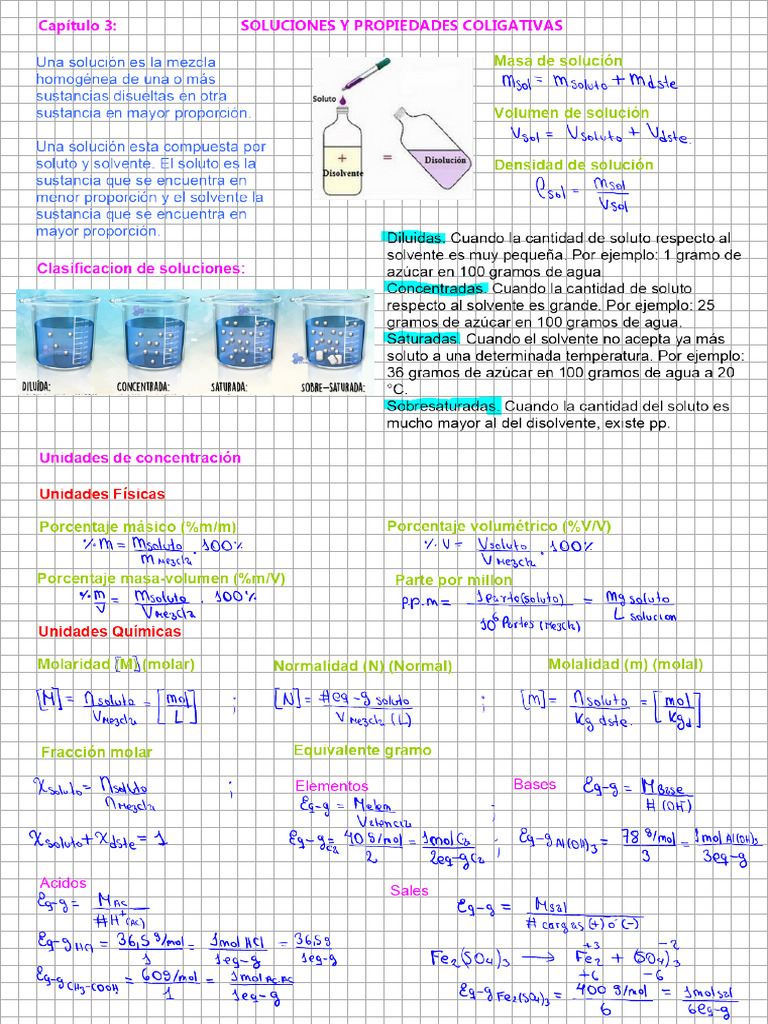 Capítulo 3: SOLUCIONES Y PROPIEDADES COLIGATIVAS
Una solución es la mezcla
homogénea de una o más
sustancias disueltas en otra
sustancia en mayor proporción.
Una solución esta compuesta por
soluto y solvente. El soluto es la
sustancia que se encuentra en
menor proporción y el solvente la
sustancia que se encuentra en
mayor proporción.
Soluto
+
Disolvente
=
Disolución
Masa de solución
m sol = m soluto + m dste
Volumen de solución
V sol = V soluto + V dste.
Densidad de solución
ρ sol = m sol / V sol
Clasificacion de soluciones:
DILUÍDA: CONCENTRADA: SATURADA: SOBRE-SATURADA:
Diluidas. Cuando la cantidad de soluto respecto al
solvente es muy pequeña. Por ejemplo: 1 gramo de
azúcar en 100 gramos de agua
Concentradas. Cuando la cantidad de soluto
respecto al solvente es grande. Por ejemplo: 25
gramos de azúcar en 100 gramos de agua.
Saturadas. Cuando el solvente no acepta ya más
soluto a una determinada temperatura. Por ejemplo:
36 gramos de azúcar en 100 gramos de agua a 20
°C.
Sobresaturadas. Cuando la cantidad del soluto es
mucho mayor al del disolvente, existe pp.
Unidades de concentración
Unidades Físicas
Porcentaje másico (%m/m)
% m = m soluto / m Mezcla · 100%
Porcentaje volumétrico (%V/V)
% V = V soluto / V Mezcla · 100%
Porcentaje masa-volumen (%m/V)
% m/V = m soluto / V Mezcla · 100%
Parte por millon
p.p.m = 1 parte (soluto) / 10⁶ Partes (Mezcla) = mg soluto / L solucion
Unidades Químicas
Molaridad [M] (molar)
[M] = n soluto / V Mezcla = [mol / L] ;
Normalidad (N) (Normal)
[N] = #eq-g soluto / V Mezcla (L) ;
Molalidad (m) (molal)
[m] = n soluto / Kg dste. = [mol / Kg d]
Fracción molar
X soluto = n soluto / n Mezcla ;
X soluto + X dste = 1
Equivalente gramo
Elementos
Eq-g = M elem / Valencia ;
Eq-g Ca = 40 g/mol / 2 = 1 mol Ca / 2 eq-g Ca ;
Bases
Eq-g = M Base / # (OH⁻)
Eq-g Al(OH)₃ = 78 g/mol / 3 = 1 mol Al(OH)₃ / 3 eq-g
Acidos
Eq-g = M AC / # H⁺ (AC)
Eq-g HCl = 36,5 g/mol / 1 = 1 mol HCl / 1 eq-g = 36,5 g / 1 eq-g
Eq-g CH₃-COOH = 60 g/mol / 1 = 1 mol AC.AC / 1 eq-g
Sales
Eq-g = M sal / # cargas (+) ó (-)
Fe₂(SO₄)₃ → Fe₂⁺³ + (SO₄)₃⁻²
+6 -6
Eq-g Fe₂(SO₄)₃ = 400 g/mol / 6 = 1 mol sal / 6 eq-g